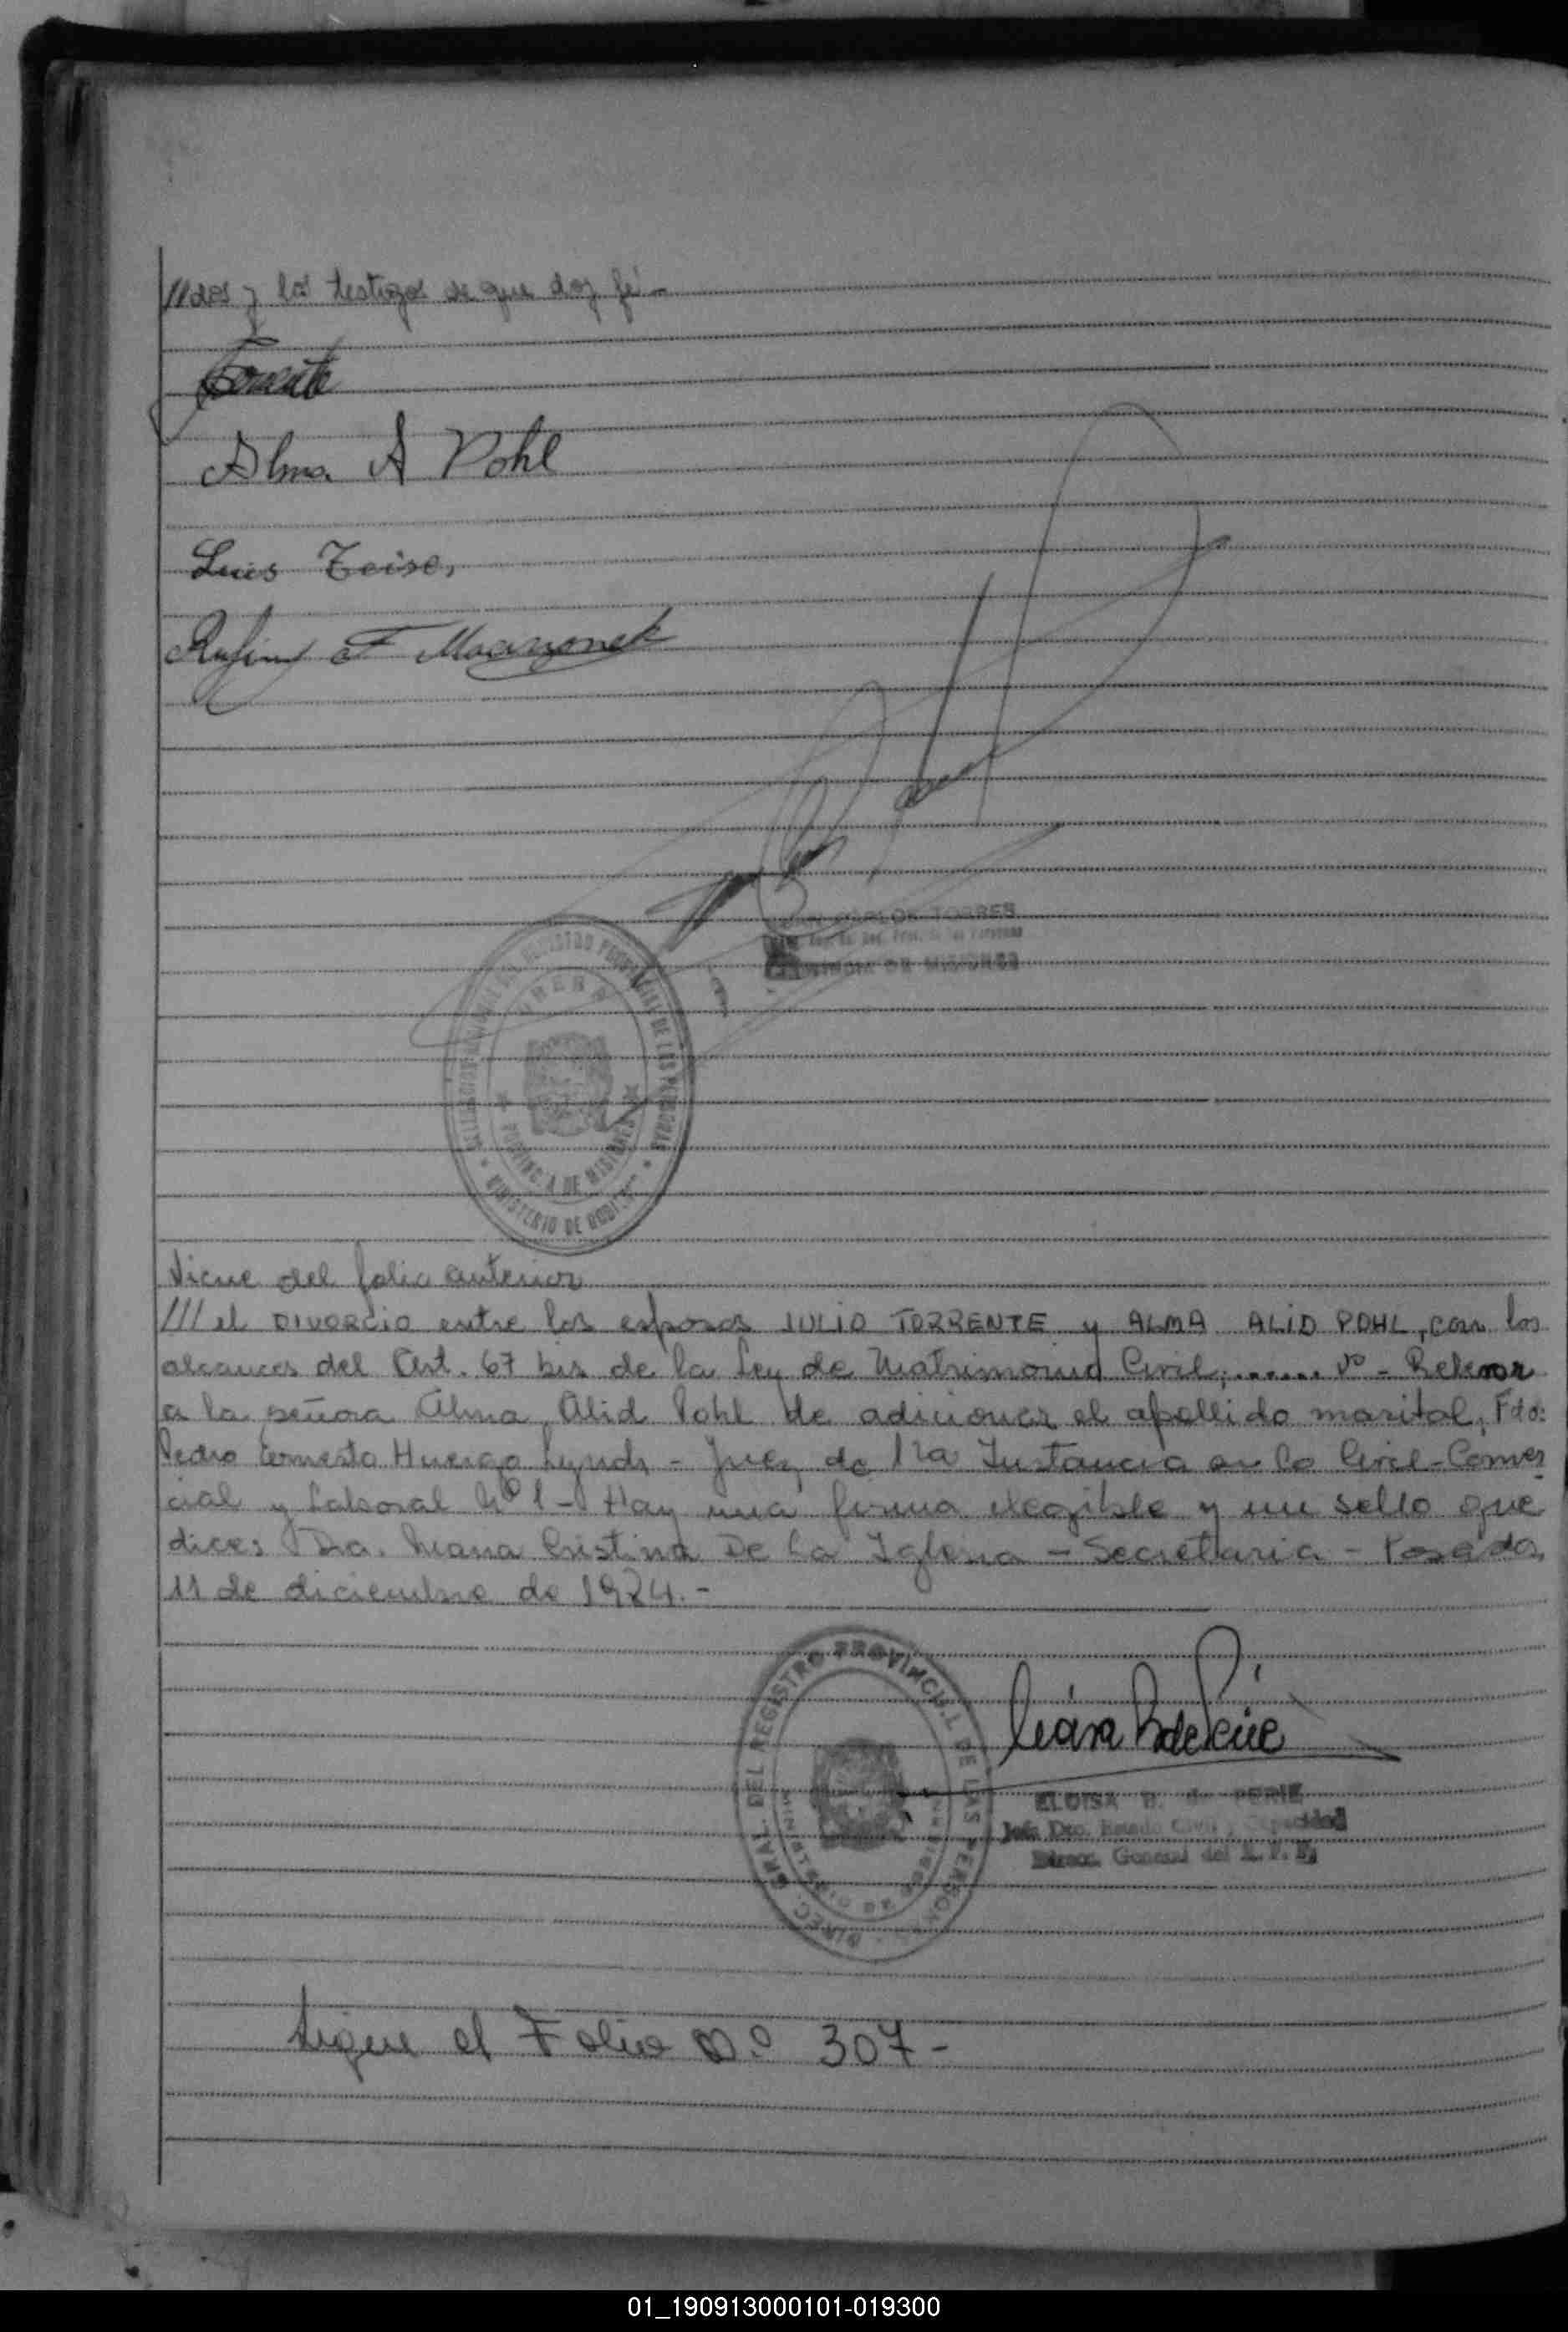 //dos y los testigos de que doy fé -
Torrente
Alma A Pohl
Luis
Rufino
CARLOS TORRES
PROVINCIA DE MISIONES
REGISTRO PROVINCIAL DE LAS PERSONAS
PROVINCIA DE MISIONES
MINISTERIO DE
Viene del folio anterior
/// el DIVORCIO entre los esposos JULIO TORRENTE y ALMA ALID POHL, con los
alcances del Art. 67 bis de la Ley de Matrimonio Civil; ...... Vº - Relevar
a la señora Alma Alid Pohl de adicionar el apellido marital, Fdo:
Pedro Ernesto Huergo Lynch - Juez de 1ra Instancia en lo Civil-Comer
cial y Laboral Nº 1 - Hay una firma ilegible y un sello que
dice: Dra. María Cristina De La Iglesia - Secretaria - Posadas,
11 de diciembre de 1924.-
DIREC. GRAL. DEL REGISTRO PROVINCIAL DE LAS PERSONAS
ELOISA B. de PERIE
Jefa Dto. Estado Civil y Capacidad
Direcc. General del R. P. P.
Sigue el Folio Nº 307-
01_190913000101-019300